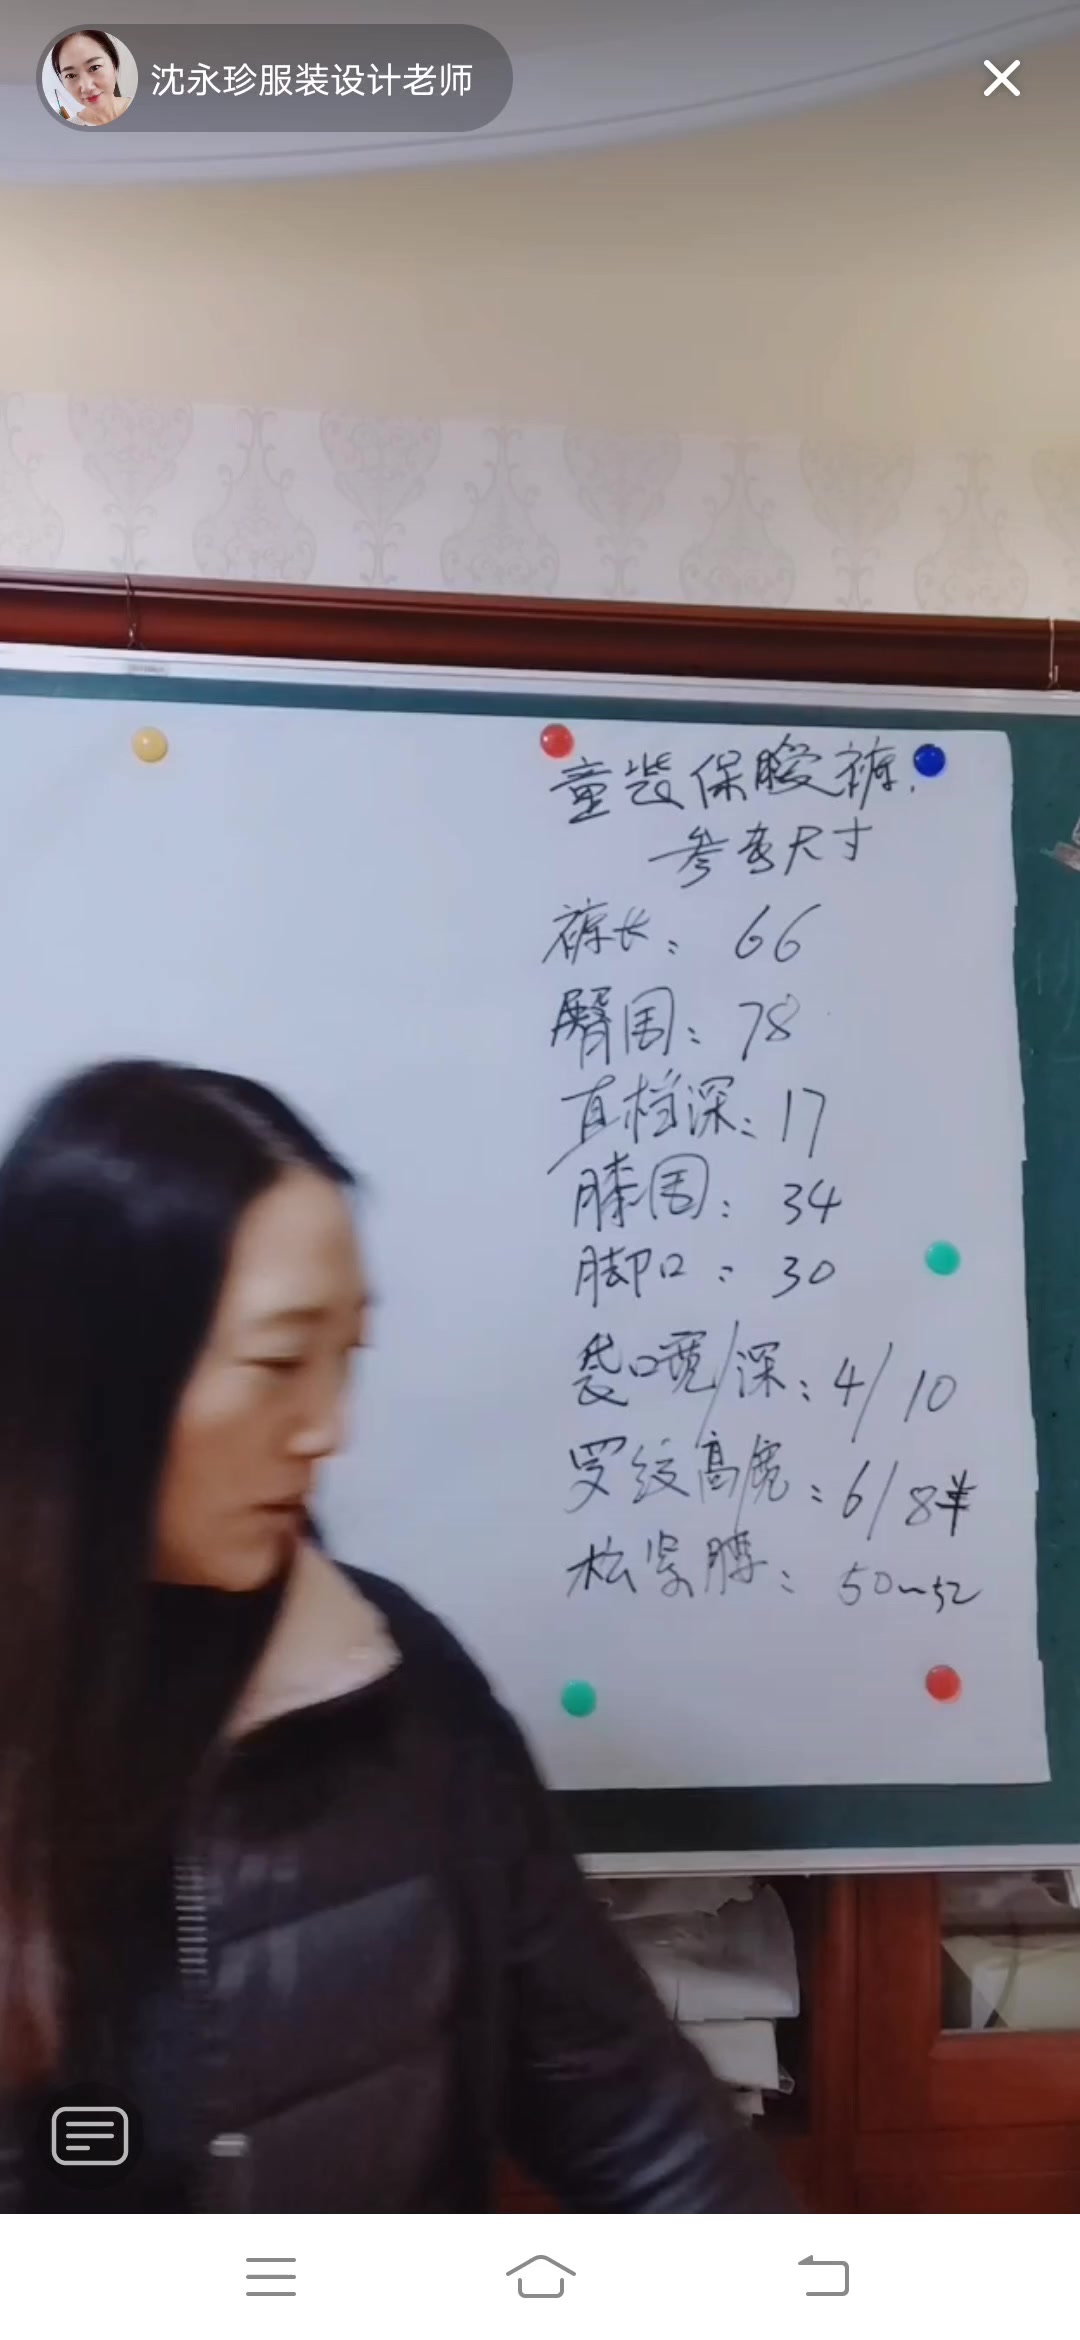 沈永珍服装设计老师
童装保暖裤.
参考尺寸
裤长: 66
臀围: 78
直档深: 17
膝围: 34
脚口: 30
袋口宽/深: 4/10
罗纹高/宽: 6/8半
松紧腰: 50~52